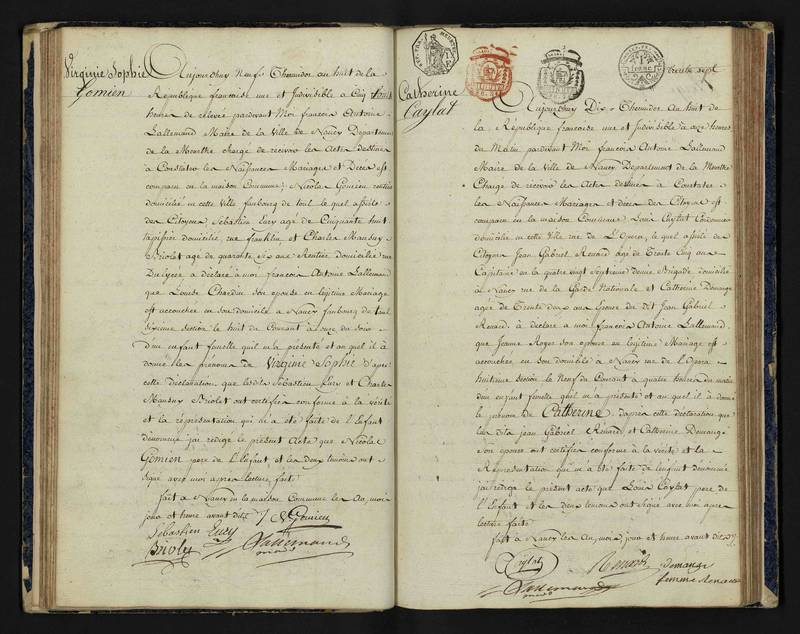 Virginie Sophie
Gomien
Aujourdhuy Neuf Thermidor an huit de la
République française une et Indivisible à Cinq
heures de relevée pardevant Moi françois Antoine
Lallemand Maire de la Ville de Nancy Departement
de la Meurthe chargé de recevoir les Actes destinés
à Constater les Naissances Mariages et Décès est
comparu en la maison Commune, Nicolas Gomien rentier
domicilié en cette Ville faubourg de toul le quel assisté
des Citoyens Sébastien Eury agé de Cinquante huit
tapissier domicilié rue franklin et Charles Mansuy
Briolet agé de quarante six ans Rentier domicilié rue
Du lycée a déclaré à moi françois Antoine Lallemand
que Louise Chardin son epouse en légitime Mariage
est accouchée en son domicile à Nancy faubourg de toul
Sixieme section le huit du Courant à onze du soir
D'un enfant femelle qu'il m'a présenté et au quel il à
donné les prénoms de Virginie Sophie d'après
cette déclaration que lesdits Sébastien Eury et Charles
Mansuy Briolet ont certifiée conforme à la vérité
et la réprésentation qui m'a été faite de l'Enfant
dénommé j'ai redigé le présent Acte que Nicolas
Gomien pere de l'Enfant et les deux temoins ont
signé avec moi après lecture faite
fait à Nancy en la maison Commune les An, mois
jour et heure avant dits
N Gomien
Sebastien Eury
Briolet
Lallemand
Catherine
Caylat
1
franc
Aujourdhuy Dix Thermidor An huit de
la République française une et Indivisible à onze heures
du Matin pardevant Moi françois Antoine Lallemand
Maire de la Ville de Nancy Departement de la Meurthe
Chargé de recevoir les Actes destinés à Constater
les Naissances Mariages et décès des Citoyens est
comparu en la maison Commune Louis Caylat Cordonnier
domicilié en cette Ville rue de L'Opera, le quel assisté de
Citoyens Jean Gabriel Renard agé de Trente Cinq ans
Capitaine en la quatre vingt Septieme demie Brigade domicilié
à Nancy rue de la Garde Nationale et Catherine Demange
agée de Trente deux ans Epouse du dit Jean Gabriel
Renard, à déclaré a moi françois Antoine Lallemand
que Jeanne Royer son epouse en legitime Mariage est
accouchée en son domicile à Nancy rue de l'Opera
huitieme section le Neuf du Courant à quatre heures du matin
d'un enfant femelle qu'il m'a présenté et au quel il à donné
le prénom de Catherine, d'après cette déclaration que
les dits jean Gabriel Renard et Catherine Demange
son epouse ont certifiée conforme à la vérité et la
Représentation qui m'a été faite de l'enfant dénommé
j'ai redigé le présent acte que Louis Caylat pere de
l'Enfant et les deux temoins ont signé avec moi après
lecture faite
fait à Nancy les An, mois, jour et heure avant dits
Caylat
Renard
demange
femme Renard
Lallemand